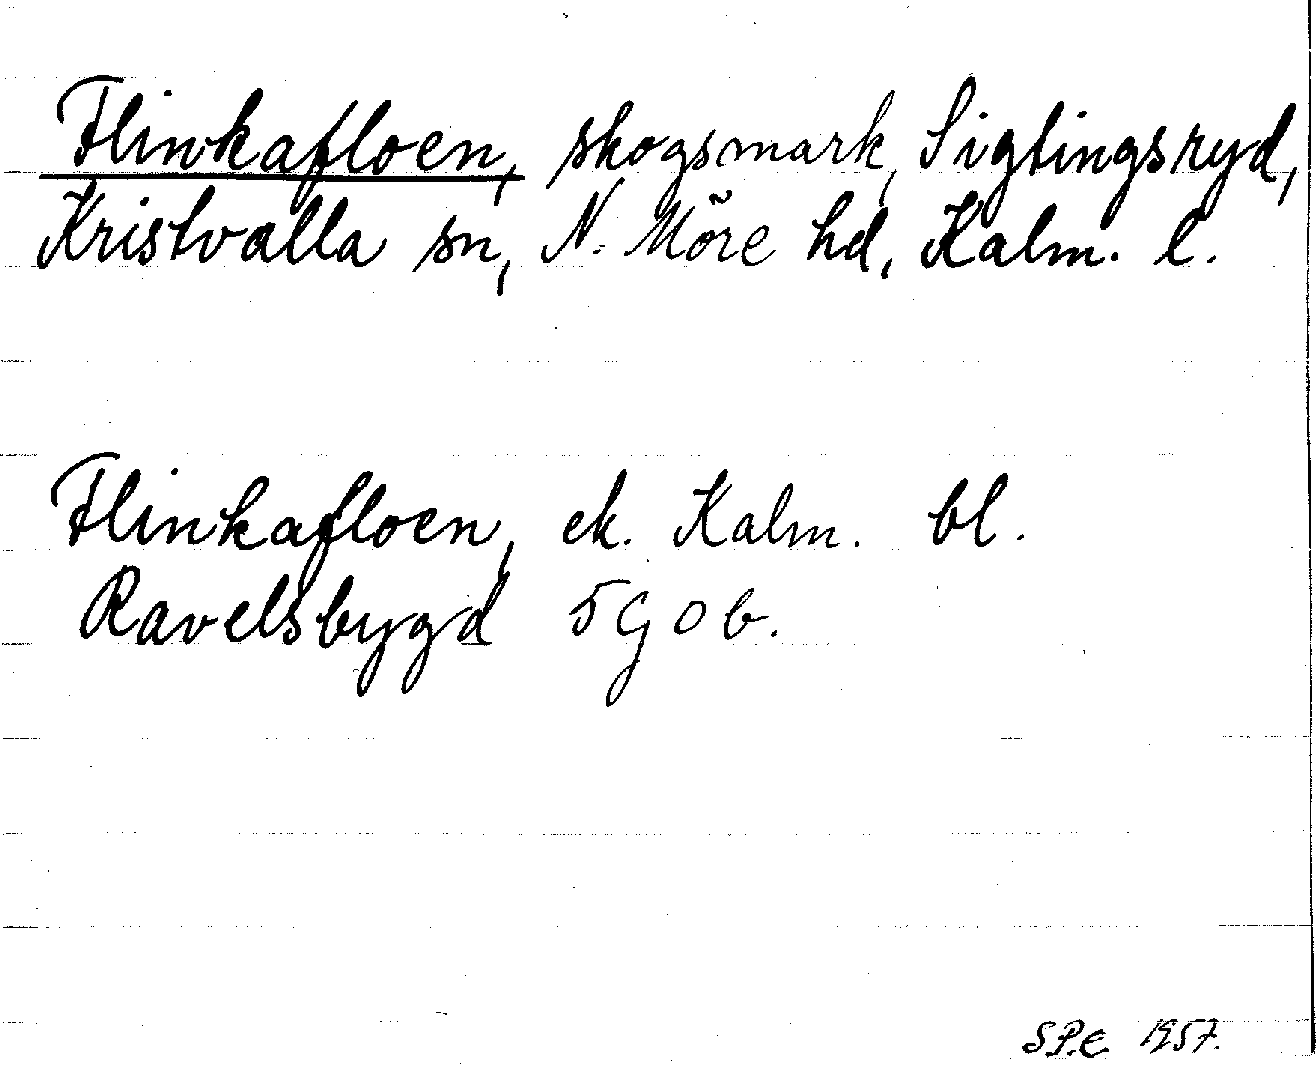 Flinkafloen, skogsmark, Siglingsryd,
Kristvalla sn, N. Möre hd, Kalm. l.
Flinkafloen, ek. Kalm. bl.
Ravelsbygd 5G0b.
S.P.e. 1957.